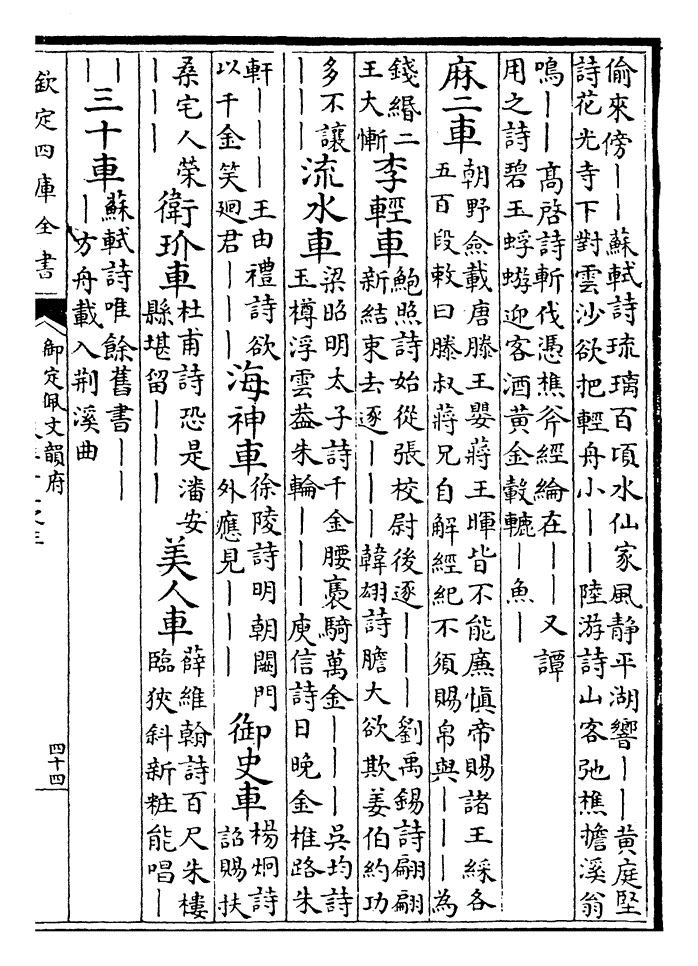 偷來傍――蘇軾詩琉璃百頃水仙家風静平湖響――黄庭堅
詩花光寺下對雲沙欲把輕舟小――陸游詩山客弛樵擔溪翁
鳴――髙啓詩斬伐憑樵斧經綸在――又譚
用之詩碧玉蜉蝣迎客酒黄金轂轆―魚―
麻二車
朝野僉載唐滕王嬰蔣王暉皆不能廉慎帝賜諸王綵各
五百段敕曰滕叔蔣兄自解經紀不須賜帛與―――為
錢緡二
王大慚
李輕車
鮑照詩始從張校尉後逐―――劉禹錫詩翩翩
新結束去逐―――韓翃詩膽大欲欺姜伯約功
多不讓
―――
流水車
梁昭明太子詩千金腰褭騎萬金―――吳均詩
玉樽浮雲葢朱輪―――庾信詩日晚金椎路朱
軒―――王由禮詩欲
以千金笑廻君―――
海神車
徐陵詩明朝闕門
外應見―――
御史車
楊炯詩
詔賜扶
桑宅人榮
―――
衛玠車
杜甫詩恐是潘安
縣堪留―――
美人車
薛維翰詩百尺朱樓
臨狹斜新粧能唱―
―
―
三十車
蘇軾詩唯餘舊書――
―方舟載入荆溪曲
欽定四庫全書
御定佩文韻府
四十四